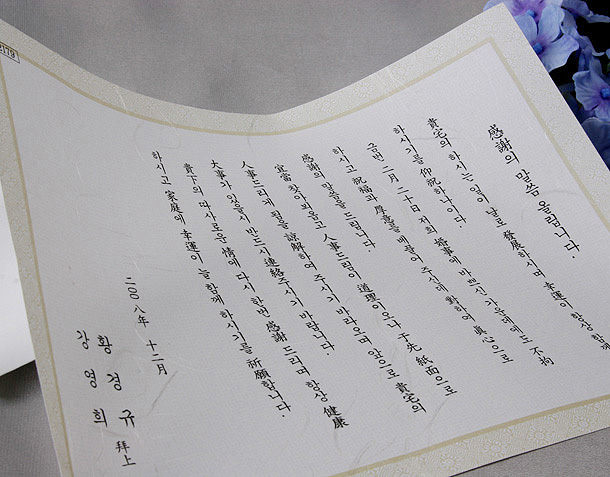 感謝의 말씀 올립니다.
貴宅의 하시는 일이 날로 發展하시며 幸運이 항상 함께
하시기를 仰祝하나이다.
금번 二月 二十日 저희 婚事에 바쁘신 가운데에도 不拘
하시고 祝福과 厚意를 베풀어 주신데 對하여 眞心으로
感謝의 말씀을 드립니다.
宜當 찾아뵈옵고 人事드림이 道理이오나 于先 紙面으로
人事드리게 됨을 諒解하여 주시기 바라오며 앞으로 貴宅의
大事가 있을시 반드시 連絡주시기 바랍니다.
貴下의 따사로운 情에 다시 한번 感謝 드리며 항상 健康
하시고 家庭에 幸運이 늘 함께 하시기를 祈願합니다.
二〇〇八年 十二月
황 경 규
강 영 희 拜上